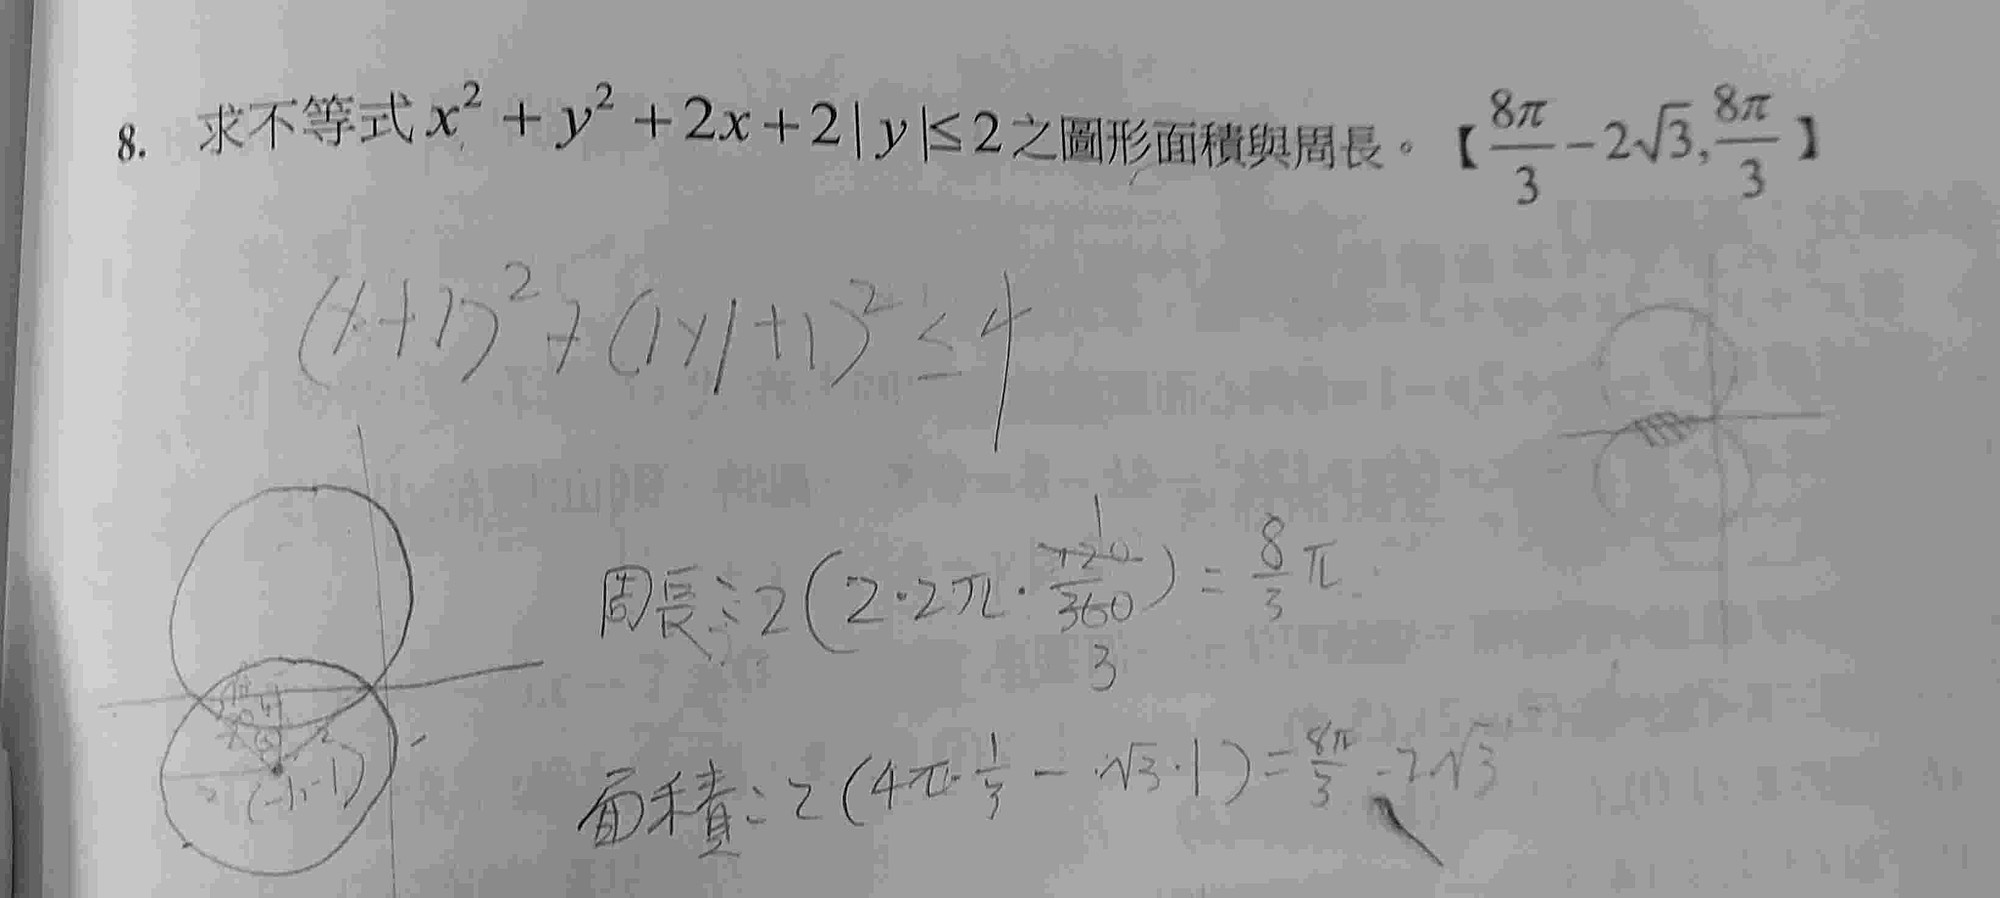 8. 求不等式 x² + y² + 2x + 2|y| ≤ 2 之圖形面積與周長。【8π/3 − 2√3, 8π/3】
(x+1)² + (|y|+1)² ≤ 4
周長: 2(2·2π·120/360) = 8/3 π
1
3
面積: 2(4π·1/3 − √3·1) = 8π/3 − 2√3
2
(-1,-1)